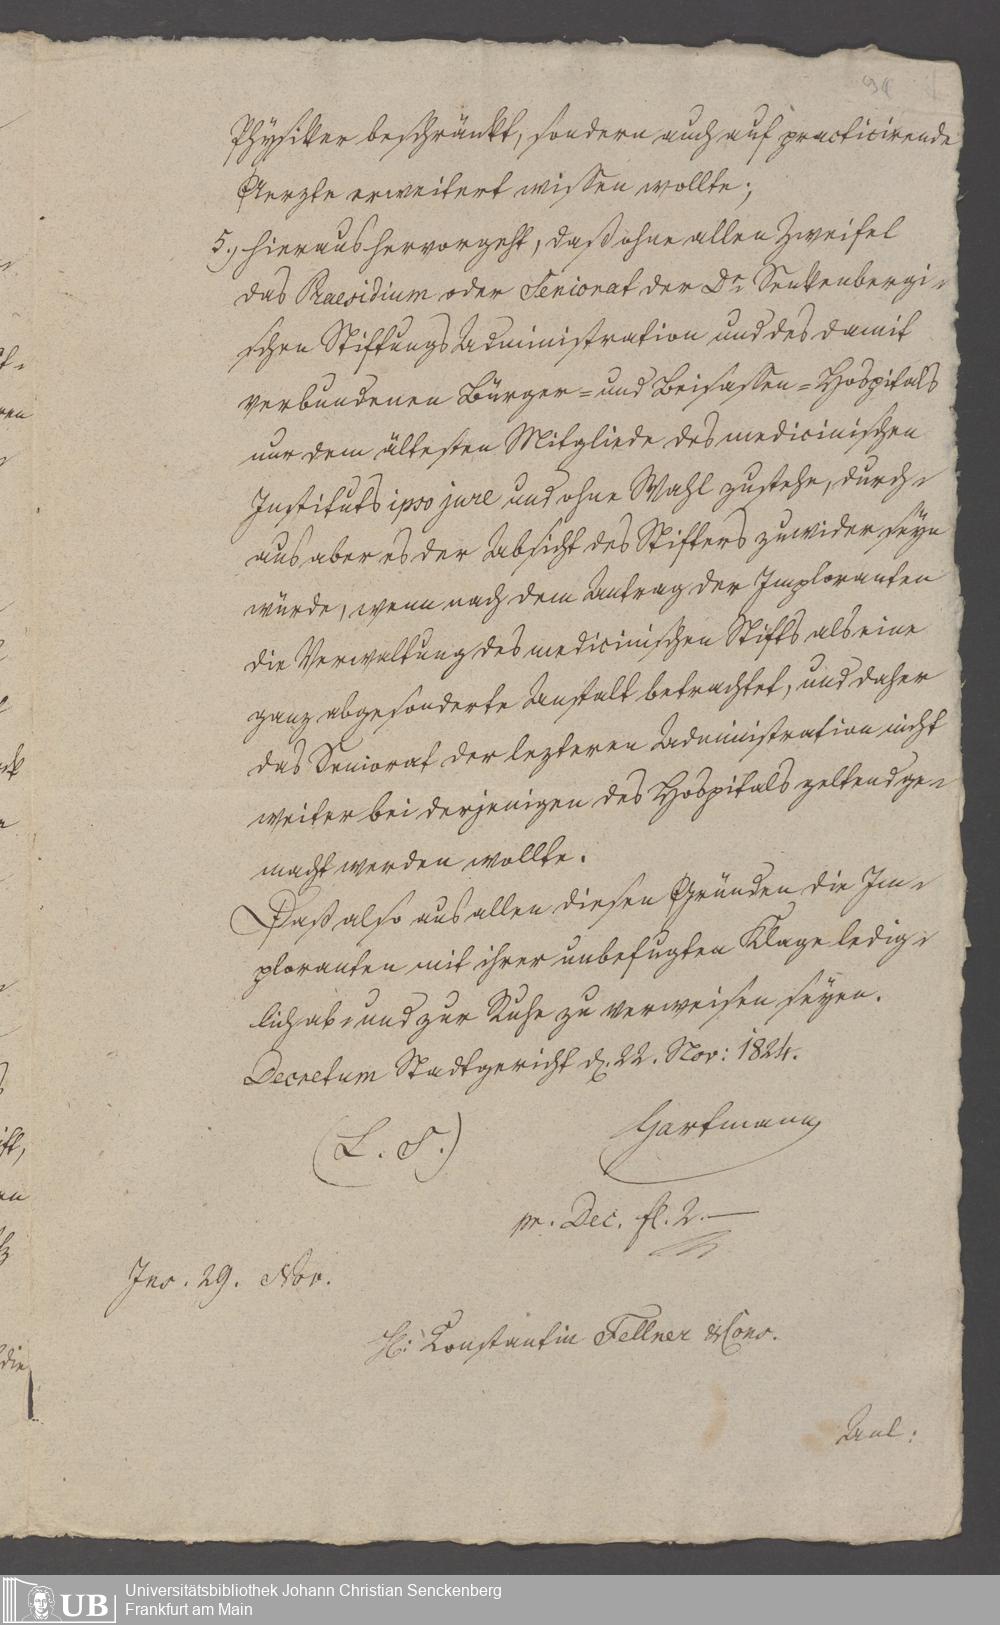 94
Physiker beschränkt, sondern auch auf practicirende
Aerzte erweitert wissen wollte;
5., hieraus hervorgeht, daß ohne allen Zweifel
das Praesidium oder Seniorat der Dr. Senkenbergi-
schen Stiftungs Administration und des damit
verbundenen Bürger- und Beisassen-Hospitals
nur dem ältesten Mitgliede des medicinischen
Instituts ipso jure und ohne Wahl zustehe, durch-
aus aber es der Absicht des Stifters zuwider seyn
würde, wenn nach dem Antrag der Imploranten
die Verwaltung des medicinischen Stifts als eine
ganz abgesonderte Anstalt betrachtet, und daher
das Seniorat der lezteren Administration nicht
weiter bei derjenigen des Hospitals geltend ge-
macht werden wollte.
Daß also aus allen diesen Gründen die Im-
ploranten mit ihrer unbefugten Klage ledig-
lich ab- und zur Ruhe zu verweisen seyen.
Decretum Stadtgericht d. 22. Nov: 1824.
(L. S.) Hartmann
pr. Dec. fl. 2.—
Ins. 29. Nov.
H: Konstantin Fellner & Cons.
Anl:
Universitätsbibliothek Johann Christian Senckenberg
Frankfurt am Main
UB